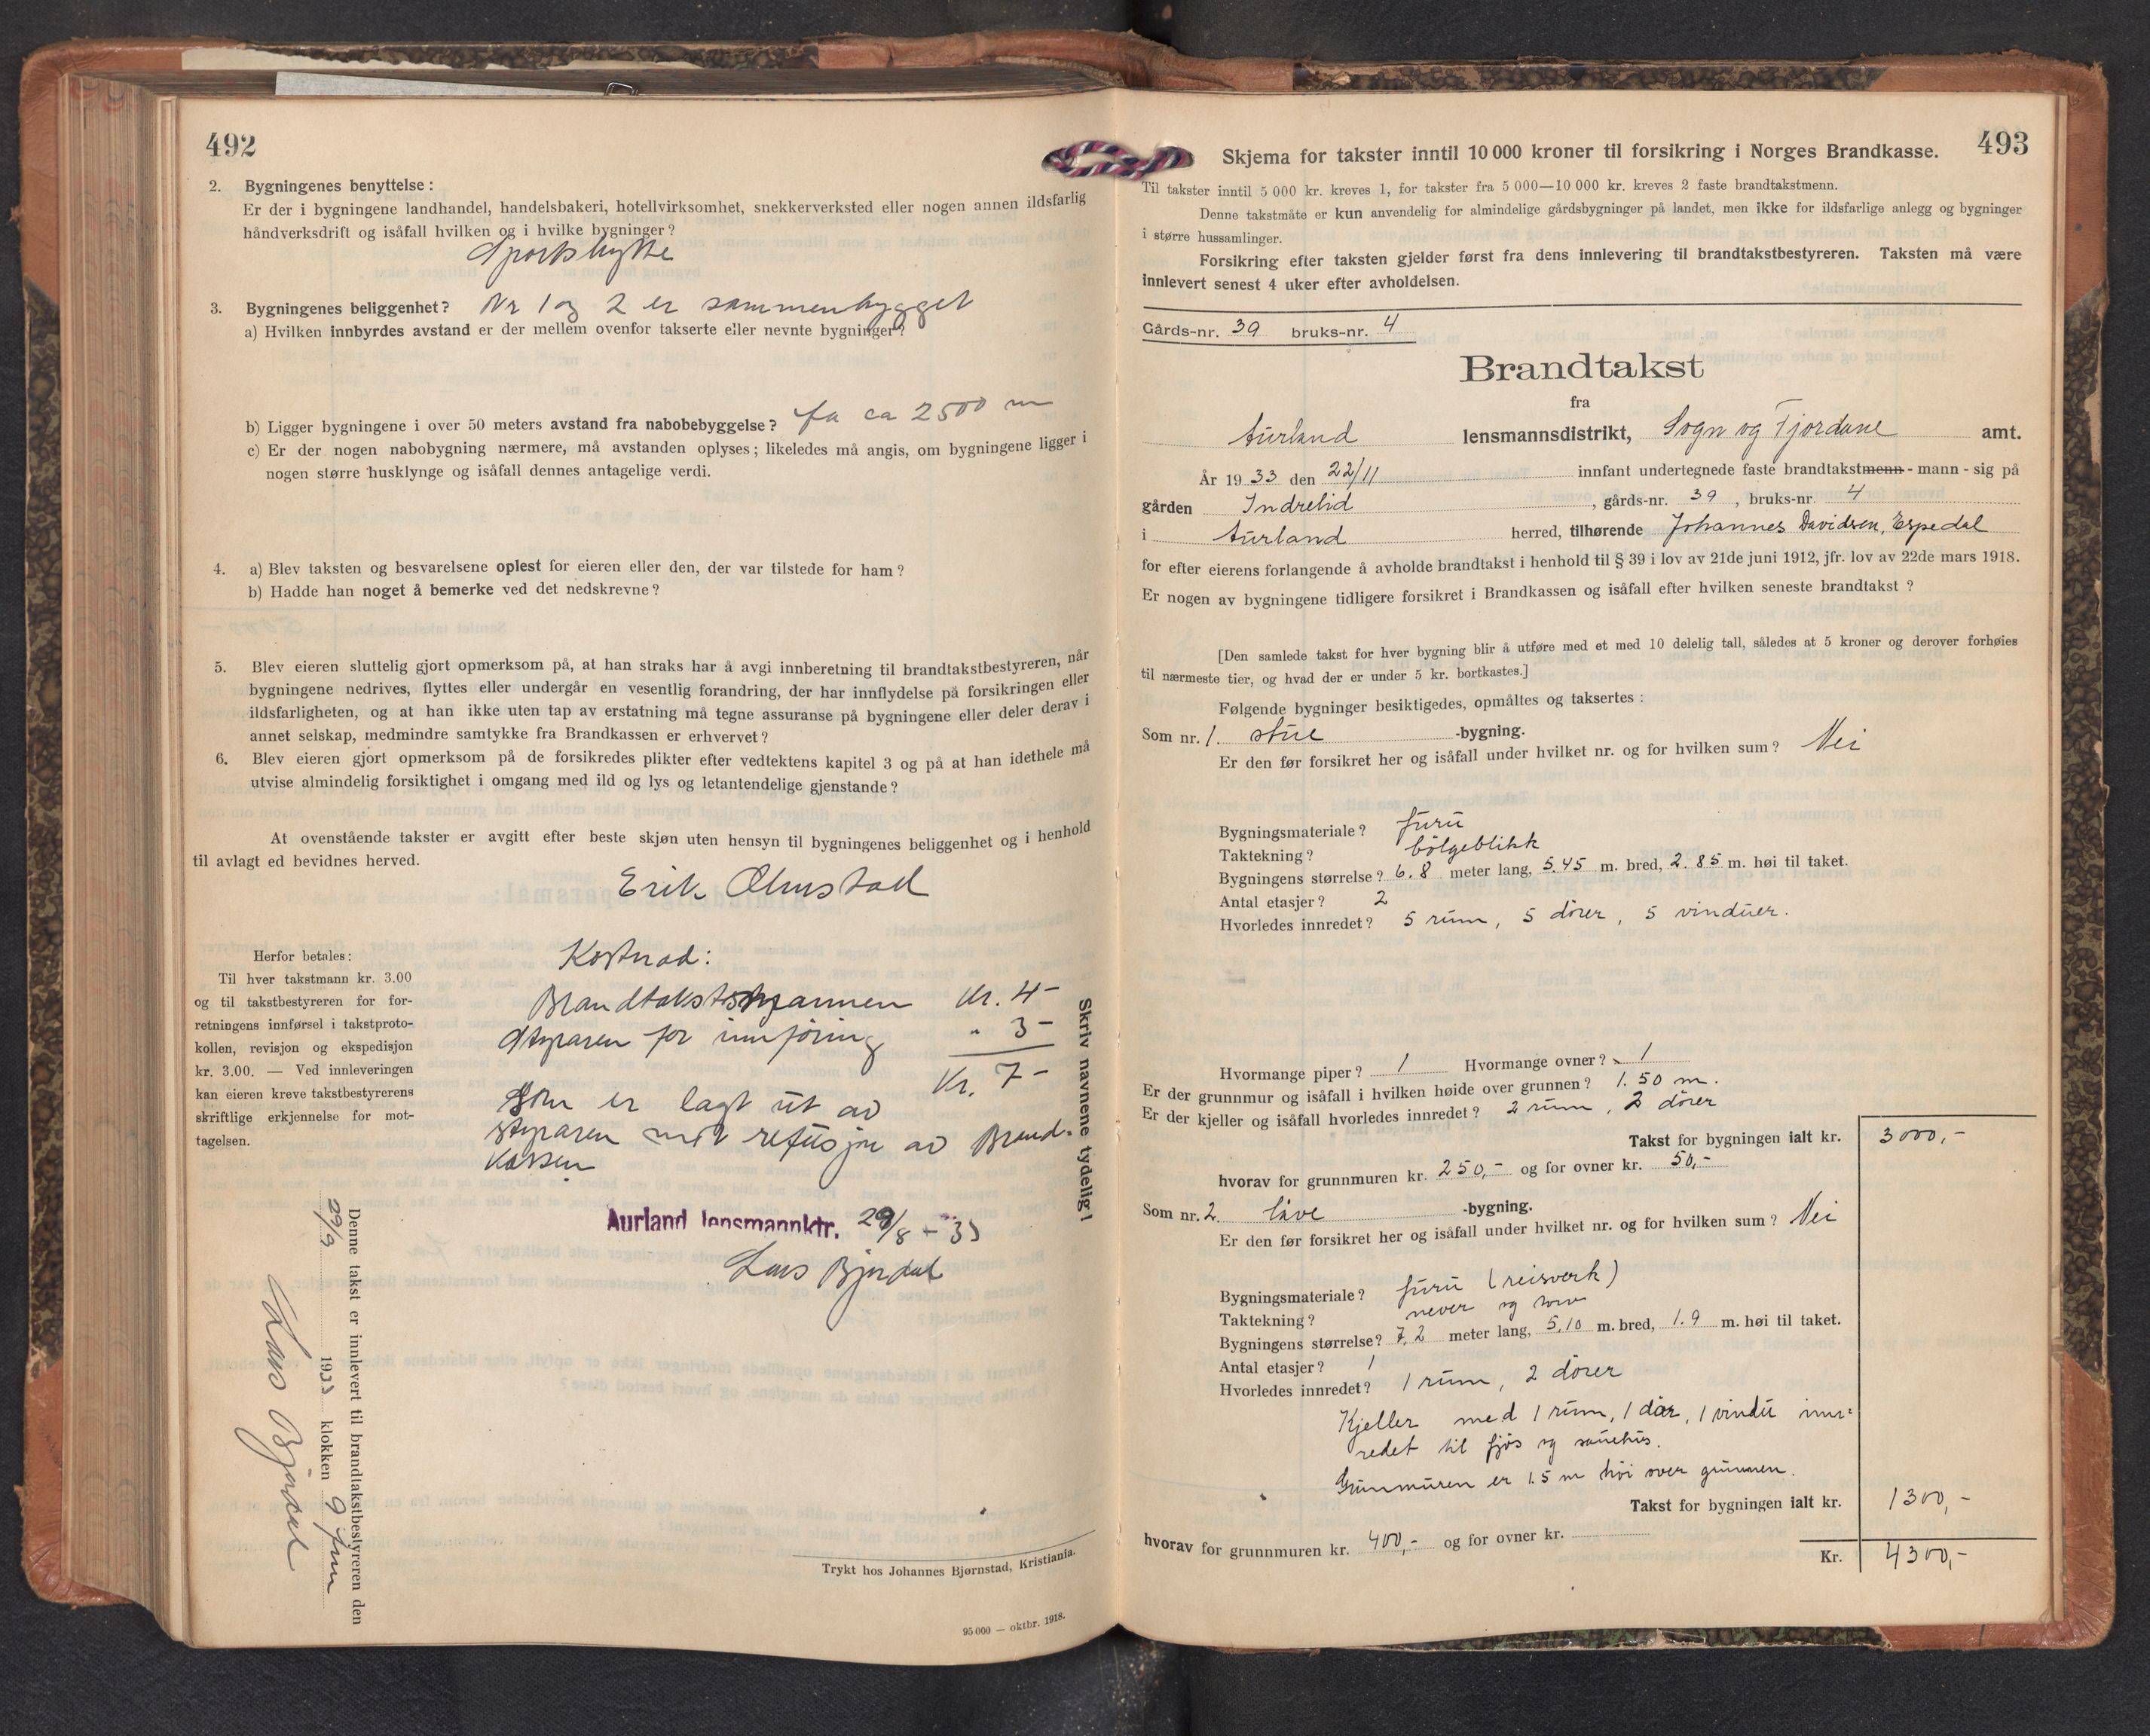 492
2. Bygningenes benyttelse:
Er der i bygningene landhandel, handelsbakeri, hotellvirksomhet, snekkerverksted eller nogen annen ildsfarlig
håndverksdrift og isåfall hvilken og i hvilke bygninger?
Sportshytte
3. Bygningenes beliggenhet? Nr 1 og 2 er sammenbygget
a) Hvilken innbyrdes avstand er der mellem ovenfor takserte eller nevnte bygninger?
b) Ligger bygningene i over 50 meters avstand fra nabobebyggelse? Ja ca 2500 m
c) Er der nogen nabobygning nærmere, må avstanden oplyses; likeledes må angis, om bygningene ligger i
nogen større husklynge og isåfall dennes antagelige verdi.
4. a) Blev taksten og besvarelsene oplest for eieren eller den, der var tilstede for ham?
b) Hadde han noget å bemerke ved det nedskrevne?
5. Blev eieren sluttelig gjort opmerksom på, at han straks har å avgi innberetning til brandtakstbestyreren, når
bygningene nedrives, flyttes eller undergår en vesentlig forandring, der har innflydelse på forsikringen eller
ildsfarligheten, og at han ikke uten tap av erstatning må tegne assuranse på bygningene eller deler derav i
annet selskap, medmindre samtykke fra Brandkassen er erhvervet?
6. Blev eieren gjort opmerksom på de forsikredes plikter efter vedtektens kapitel 3 og på at han idethele må
utvise almindelig forsiktighet i omgang med ild og lys og letantendelige gjenstande?
At ovenstående takster er avgitt efter beste skjøn uten hensyn til bygningenes beliggenhet og i henhold
til avlagt ed bevidnes herved.
Erik Ølnstad
Herfor betales:
Til hver takstmann kr. 3.00
og til takstbestyreren for for-
retningens innførsel i takstproto-
kollen, revisjon og ekspedisjon
kr. 3.00. — Ved innleveringen
kan eieren kreve takstbestyrerens
skriftlige erkjennelse for mot-
tagelsen.
Kostnad:
Brandtakstsmannen Kr. 4-
Styraren for innføring " 3-
Kr. 7-
Som er lagt ut av
styraren mot refusjon av Brand-
kassen
Aurland lensmannktr. 29/8 - 33
Lars Bjørdal
Skriv navnene tydelig!
Denne takst er innlevert til brandtakstbestyreren den
29/9 1933 klokken 9 fm
Lars Bjørdal
Trykt hos Johannes Bjørnstad, Kristiania.
95000 — oktbr. 1918.
493
Skjema for takster inntil 10 000 kroner til forsikring i Norges Brandkasse.
Til takster inntil 5 000 kr. kreves 1, for takster fra 5 000—10 000 kr. kreves 2 faste brandtakstmenn.
Denne takstmåte er kun anvendelig for almindelige gårdsbygninger på landet, men ikke for ildsfarlige anlegg og bygninger
i større hussamlinger.
Forsikring efter taksten gjelder først fra dens innlevering til brandtakstbestyreren. Taksten må være
innlevert senest 4 uker efter avholdelsen.
Gårds-nr. 39 bruks-nr. 4
Brandtakst
fra
Aurland lensmannsdistrikt, Sogn og Fjordane amt.
År 1933 den 22/11 innfant undertegnede faste brandtakstmenn - mann - sig på
gården Indrelid, gårds-nr. 39, bruks-nr. 4
i Aurland herred, tilhørende Johannes Davidsen, Espedal
for efter eierens forlangende å avholde brandtakst i henhold til § 39 i lov av 21de juni 1912, jfr. lov av 22de mars 1918.
Er nogen av bygningene tidligere forsikret i Brandkassen og isåfall efter hvilken seneste brandtakst?
[Den samlede takst for hver bygning blir å utføre med et med 10 delelig tall, således at 5 kroner og derover forhøies
til nærmeste tier, og hvad der er under 5 kr. bortkastes.]
Følgende bygninger besiktigedes, opmåltes og taksertes:
Som nr. 1. stue -bygning.
Er den før forsikret her og isåfall under hvilket nr. og for hvilken sum? Nei
Bygningsmateriale? furu
Taktekning? bølgeblikk
Bygningens størrelse? 6.8 meter lang, 5.45 m. bred, 2.85 m. høi til taket.
Antal etasjer? 2
Hvorledes innredet? 5 rum, 5 dører, 5 vinduer.
Hvormange piper? 1 Hvormange ovner? 1
Er der grunnmur og isåfall i hvilken høide over grunnen? 1.50 m.
Er der kjeller og isåfall hvorledes innredet? 2 rum, 2 dører
Takst for bygningen ialt kr. 3000,-
hvorav for grunnmuren kr. 250,- og for ovner kr. 50,-
Som nr. 2. løve -bygning.
Er den før forsikret her og isåfall under hvilket nr. og for hvilken sum? Nei
Bygningsmateriale? furu (reisverk)
Taktekning? never og torv
Bygningens størrelse? 7,2 meter lang, 5,10 m. bred, 1.9 m. høi til taket.
Antal etasjer? 1
Hvorledes innredet? 1 rum, 2 dører
Kjeller med 1 rum, 1 dør, 1 vindu inn-
redet til fjøs og sauehus.
Grunmuren er 1.5 m høi over grunnen.
Takst for bygningen ialt kr. 1300,-
hvorav for grunnmuren kr. 400,- og for ovner kr.
Kr. 4300,-